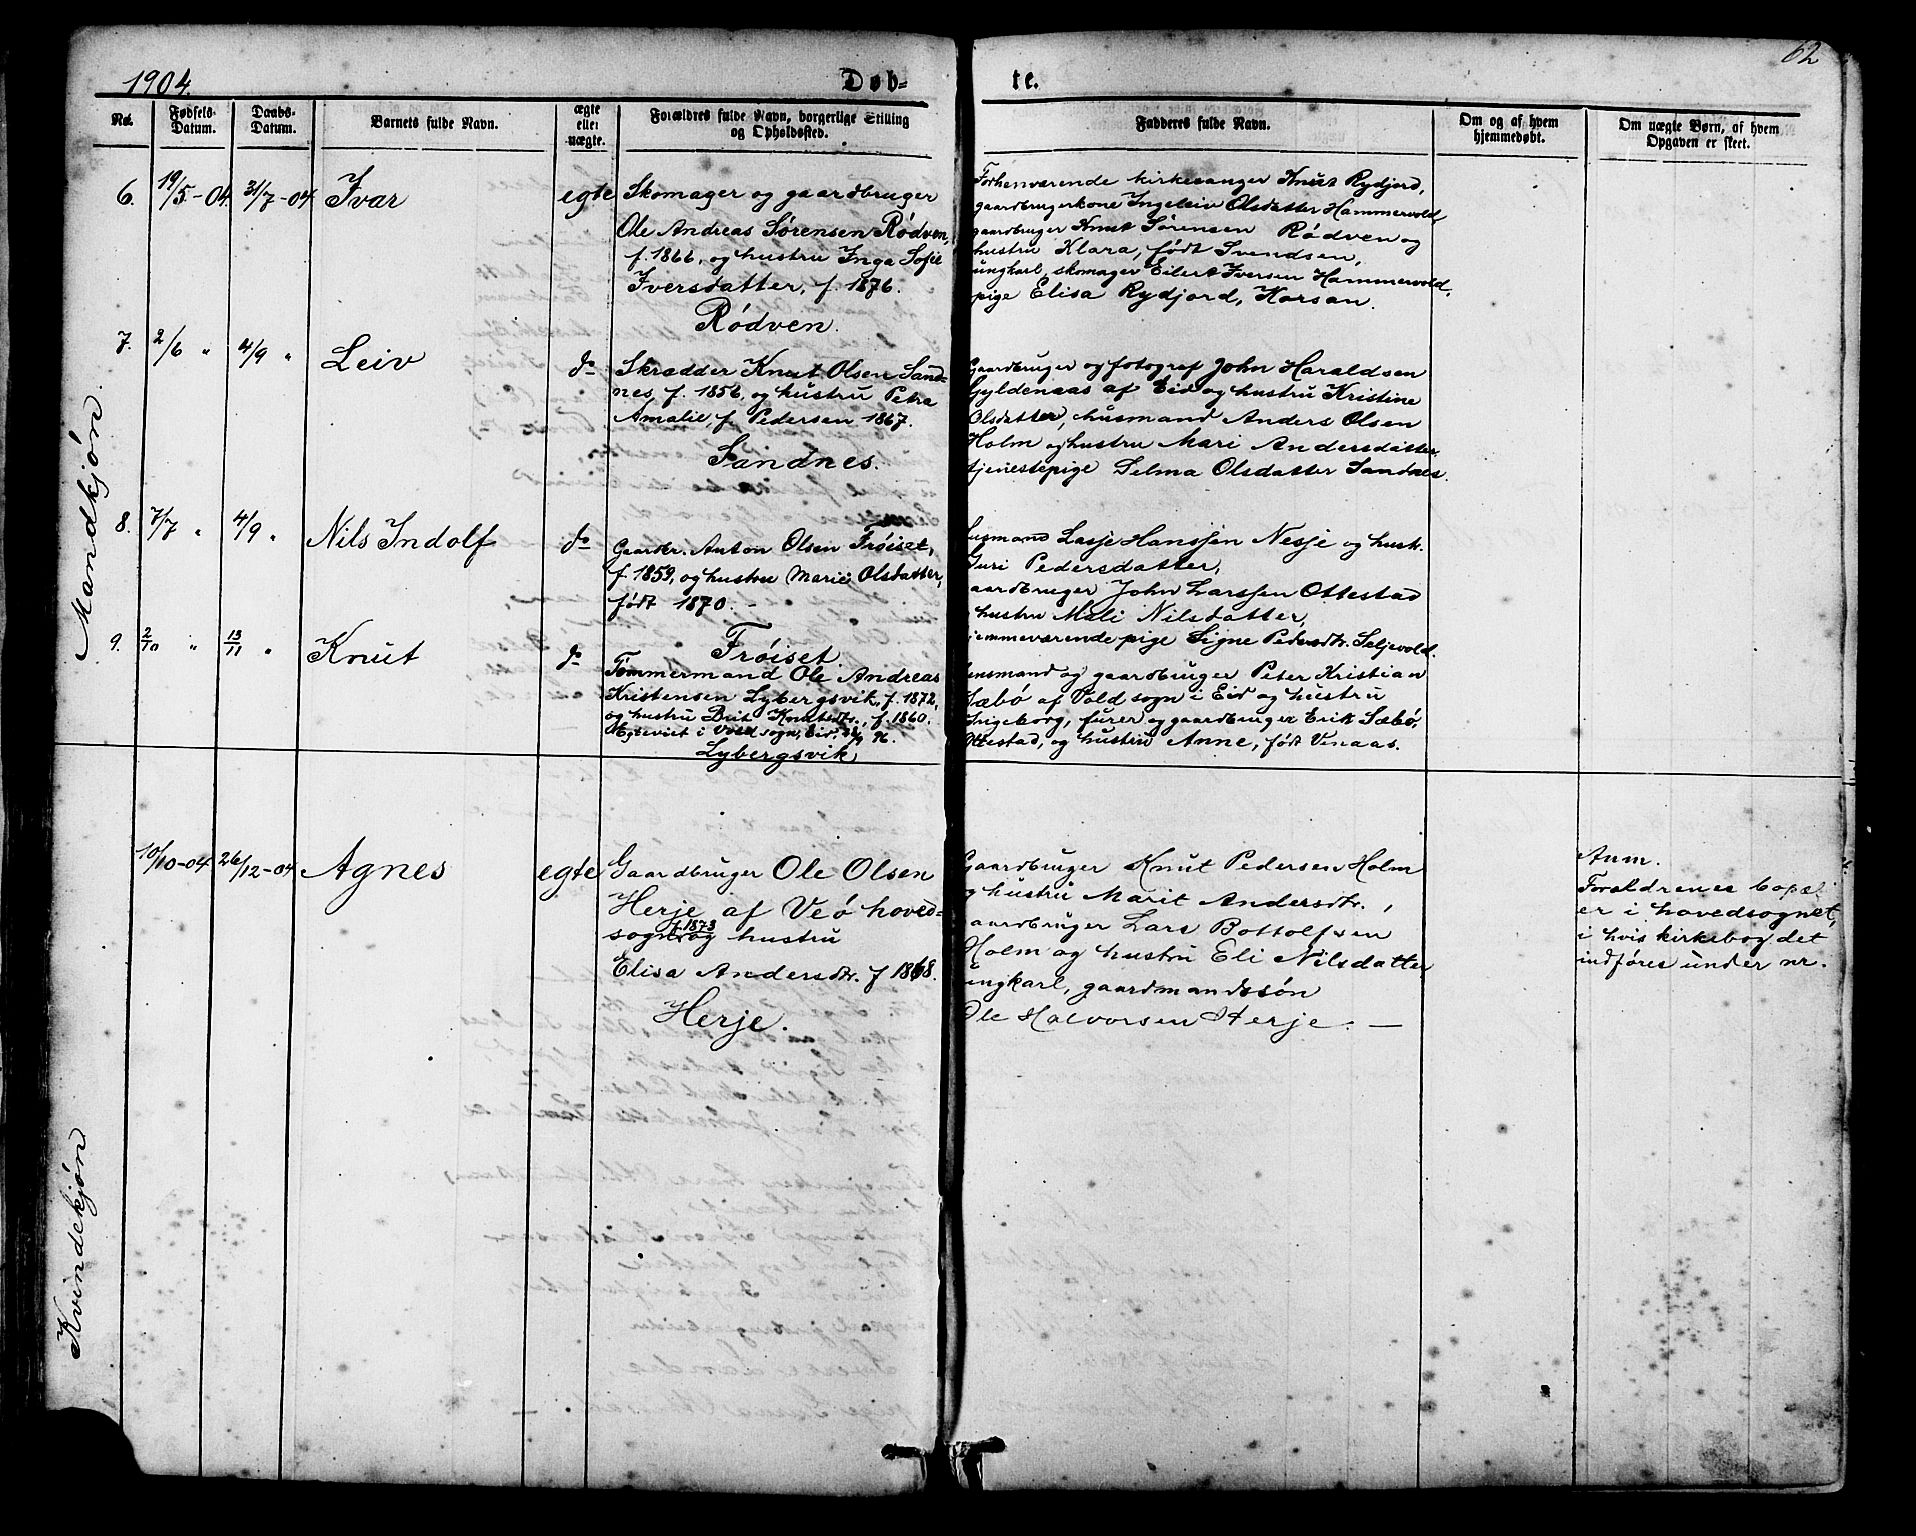 1904.
Døb-
te.
62
No.
Fødsels-
Datum.
Daabs-
Datum.
Barnets fulde Navn.
ægte
eller
uægte.
Forældres fulde Navn, borgerlige Stilling
og Opholdssted.
Fadderes fulde Navn.
Om og af hvem
hjemmedøbt.
Om uægte Børn, af hvem
Opgaven er skeet.
Mandkjøn.
6.
19/5-04.
31/7-04
Ivar
egte
Skomager og gaardbruger
Ole Andreas Sørensen Rødven,
f. 1866, og hustru Inga Sofie
Iversdatter, f. 1876.
Rødven.
Forhenværende kirkesanger Knut Rydjord,
gaardbrugerkone Ingeleiv Olsdatter Hammervold,
gaardbruger Knut Sørensen Rødven og
hustru Klara, født Svendsen,
ungkarl, skomager Eilert Iversen Hammervold,
pige Elisa Rydjord, Korsan.
7.
2/6 "
4/9 "
Leiv
do
Skrædder Knut Olsen Sand-
nes, f. 1856, og hustru Petra
Amalie, f. Pedersen 1867.
Sandnes.
Gaardbruger og fotograf John Haraldsen
Gyldenaas af Eid og hustru Kristine
Olsdatter, husmand Anders Olsen
Holm og hustru Mari Andersdatter,
tjenestepige Selma Olsdatter Sandnes.
8.
7/7 "
4/9 "
Nils Indolf
do
Gaardbr. Anton Olsen Frøiset,
f. 1859, og hustru Marie Olsdatter,
født 1870. -
Frøiset.
husmand Lasse Hanssen Nesje og hustr.
Guri Pedersdatter,
aardbruger John Larssen Ottestad
hustru Mali Nilsdatter,
jemmeværende pige Signe Pedersdtr. Seljevold.
9.
2/10 "
13/11 "
Knut
do
Tømmermand Ole Andreas
Kristensen Lybergsvik, f. 1872,
og hustru Brit Knutsdtr., f. 1860.
Lybergsvik,
ensmand og gaardbruger Peter Kristian
Sæbø af Vold sogn i Eid og hustru
Ingeborg, furer og gaardbruger Erik Sæbø,
Ottestad, og hustru Anne, født Venaas.
Kvindekjøn
10/10-04
26/12-04
Agnes
egte
Gaardbruger Ole Olsen
Herje af Veø hoved-
f. 1873
sogn og hustru
Elisa Andersdtr. f 1868.
Herje.
Gaardbruger Knut Pedersen Holm
g hustru Marit Andersdtr.,
aardbruger Lars Bottolfsen
Holm og hustru Eli Nilsdatter
ungkarl, gaardmandssøn
Ole Halvorsen Herje. —
Anm.
Forældrenes bopæl
er i hovedsognet,
i hvis kirkebog det
indføres under nr.